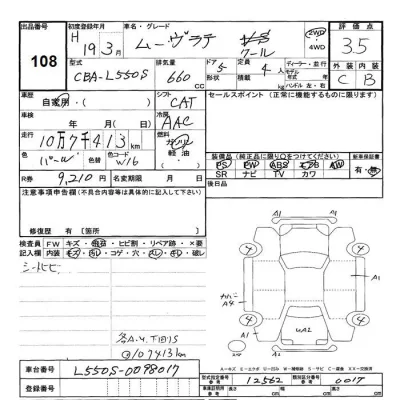 出品番号 108
初度登録年月 H 19年3月
車名・グレード ムーヴラテ クール
2WD 4WD
評価点 3.5
型式 CBA-L550S
排気量 660 CC
ドア 5
形状
定員 4人
ディーラー・並行
モデル年式
ハンドル 左・右
外装 内装
C B
車歴 自家用・( )
シフト CAT
セールスポイント(正常に機能するものに限ります)
車検 年 月
冷房 AAC
走行 10万7千413 km
燃料 ガソリン 軽油・
色 パール
色替
色No. W16
装備品(純正品に限り○をつけてください)
新車保証書
PS PW ABS エアB AW
有・無
R券 9,210円
名義変更期限 月 日
SR ナビ TV カワ
注意事項申告欄(不具合内容等は具体的に記入して下さい)
後日品
修復歴 有〔箇所 〕
検査員記入欄
FW キズ・飛石・ヒビ割・リペア跡・×要
内装 キズ・汚レ・コゲ・穴・スレ・切レ・破レ
シートヒビ
各A.U.T凹S
◎107413km
A1
A1
4
4
4
4
A1
A4
UA2
A1
A1
A-キズ E-エクボ U-凹み W-補修跡 S-サビ C-腐食 XX-交換済
車台番号 L550S-0098017
型式指定番号 参考 12562
類別区分番号 参考 0017
登録番号
車検寸法 参考 長さ cm 幅 cm 高さ cm